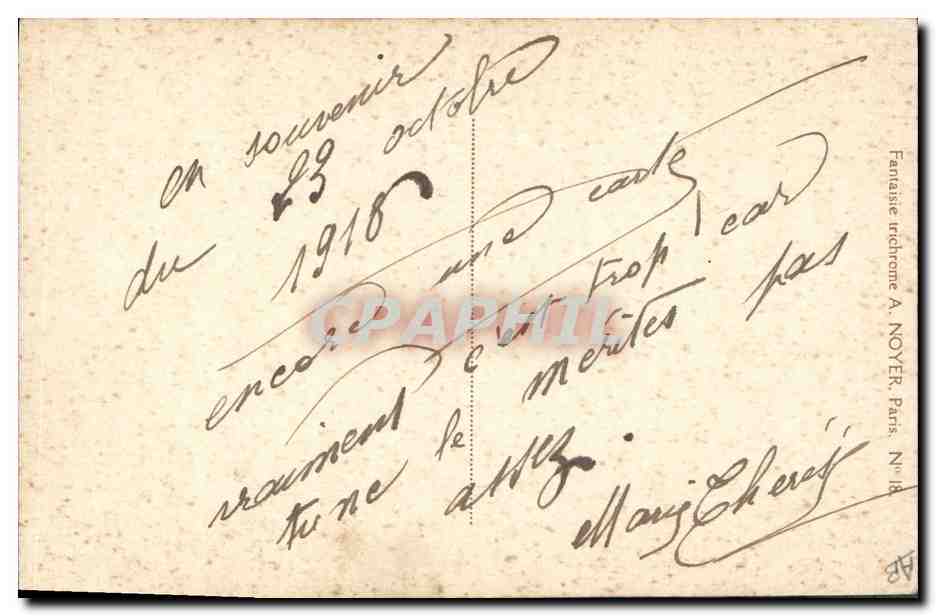 en souvenir
du 23 octobre
1918
encore une carte
vraiment c'est trop! car
tu ne le mérites pas
assez.
Marie Thérèse
Fantaisie trichrome A. NOYER, Paris. N° 18
CPAPHIL